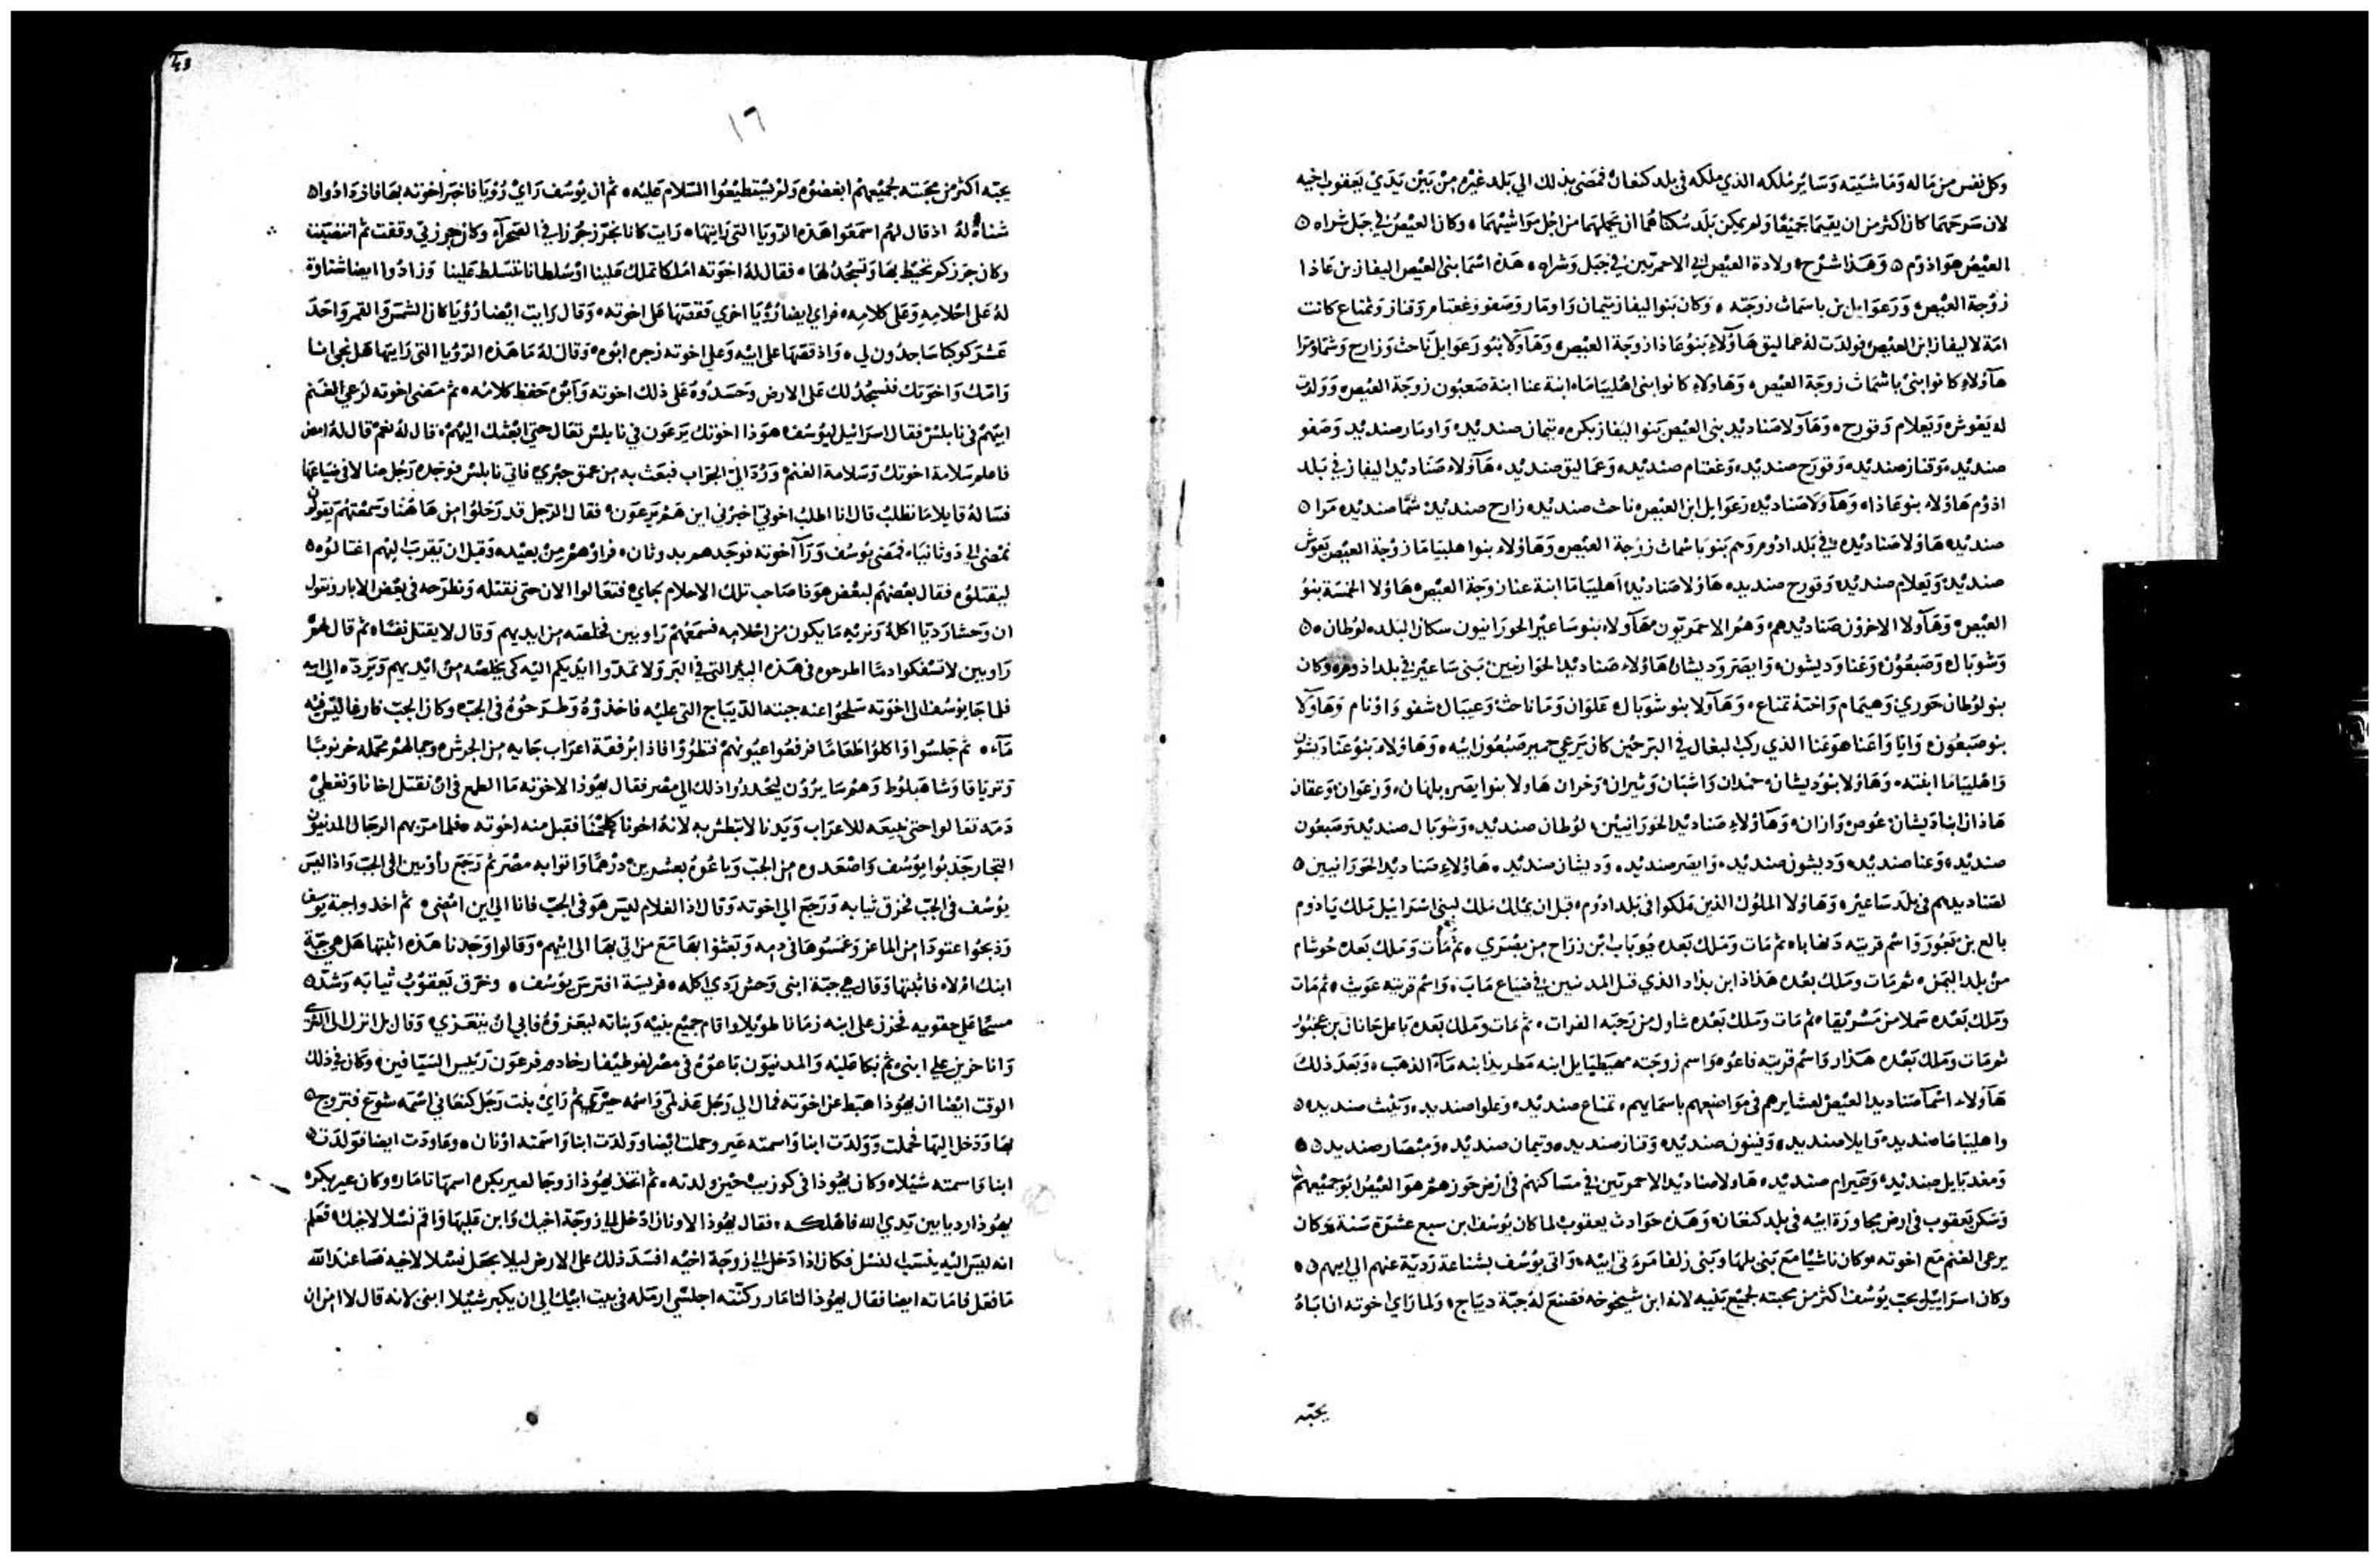 وكل نفس من ماله وماشيته وساير ملكه الذي ملكه في بلد كنعان فمضى بذلك الي بلد غيره من بين يدي يعقوب اخيه
لان سرحهما كان اكثر من ان يقيما جميعا ولم يمكن بلد سكناهما ان يحملهما من اجل مواشيهما ٥ وكان العيص في جبل شراه ٥
العيص هو اذوم ٥ وهذا شرح ولادة العيص ابي الاحمريين في جبل وشراه ٥ هذه اسما بني العيص اليفاز بن عاذا
زوجة العيص ورعوايل بن باسماث زوجته ٥ وكان بنوا اليفاز تيمان واومار وصفو وغعتام وقناز وتمناع كانت
امة لاليفاز ابن العيص فولدت له عماليق هآولاء بنو عاذا زوجة العيص وهآولا بنو رعوايل ناحث وزارح وشما ومزا
هآولاء كانوا بني باسماث زوجة العيص ٥ وهاولاء كانوا بني اهليباماه ابنة عنا ابنة صبعون زوجة العيص وولدت
له يعوش ويعلام وقورح ٥ وهآولا صناديد بني العيص بنوا اليفاز بكره تيمان صنديد واومار صنديد وصفو
صنديد وقناز صنديد وقورح صنديد وغعتام صنديد وعماليق صنديد ٥ هآولاء صناديد اليفاز في بلد
اذوم هاولاء بنو عاذاه وهآولا صناديد رعوايل ابن العيص ناحث صنديد زارح صنديد شما صنديد مزا ٥
صنديد هاولا صناديده في بلد اذوم وهم بنو باسماث زوجة العيص وهاولاء بنوا اهليباما زوجة العيص يعوش
صنديد ويعلام صنديد وقورح صنديد هاولا صناديد اهليباما ابنة عنا زوجة العيص هاولا الخمسة بنو
العيص وهآولا الاخرون صناديدهم وهم الاحمريون هآولاء بنو ساعير الحورانيون سكان البلد لوطان ٥
وشوبال وصبعون وعنا وديشون وايصر وديشان هاولاء صناديد الحوارنيين بني ساعير في بلد اذوم وكان
بنو لوطان حوري وهيمام واخته تمناع ٥ وهآولا بنو شوبال علوان ومناحث وعيبال شفو واونام وهآولا
بنو صبعون وايا واعنا هو عنا الذي ركب البغال في البر حين كان يرعي حمير صبعون ابيه ٥ وهاولاء بنو عنا ديشون
واهليباما ابنته ٥ وهاولا بنو ديشان حمدان واشبان ويثران وخران هاولا بنوا ايصر بلهان وزعوان وعقان
هاذان ابنا ديشان عوص واران ٥ وهآولاء صناديد الحورانيين لوطان صنديد وشوبال صنديد وصبعون
صنديد وعنا صنديد وديشون صنديد ٥ وايصر صنديد ٥ وديشان صنديد ٥ هاولاء صناديد الحورانيين ٥
لصناديدهم في بلد ساعير ٥ وهاولا الملوك الذين ملكوا في بلد اذوم قبل ان يملك ملك لبني اسراييل ملك باذوم
بالع بن بعور واسم قريته دنهابا ٥ ثم مات وملك بعده يوباب ابن زراح من بصري ٥ ثم مات وملك بعده حوشام
من بلد اليمن ٥ ثم مات وملك بعده هذاذ ابن بداد الذي قتل المدنيين في ضياع ماب ٥ واسم قريته عويث ٥ ثم مات
وملك بعده سملا من مسريقا ٥ ثم مات وملك بعده شاول من رحبة الفرات ٥ ثم مات وملك بعده باعل حانان بن عخبور
ثم مات وملك بعده هذار واسم قريته فاعوه واسم زوجته مهيطبايل ابنه مطريذ ابنه مآء الذهب ٥ وبعد ذلك
هآولاء اسمآ صناديد العيص لعشايرهم في مواضعهم باسمايهم ٥ تمناع صنديد وعلوا صنديد ويثيث صنديد ٥
واهليباما صنديد وايلا صنديد ٥ وفينون صنديد وقناز صنديد وتيمان صنديد ٥ ومبصار صنديد ٥
ومغديايل صنديد وعيرام صنديد ٥ هاولا صناديد الاحمريين في مساكنهم في ارض حوزهم هو العيص ابو جميعهم
وسكن يعقوب في ارض مجاورة ابيه في بلد كنعان ٥ وهذه حوادث يعقوب لما كان يوسف ابن سبع عشرة سنة وكان
يرعى الغنم مع اخوته وكان ناشيا مع بني بلها وبني زلفا مرتي ابيه ٥ واتى يوسف بشناعة ردية عنهم الي ابيهم ٥
وكان اسراييل يحب يوسف اكثر من محبته لجميع بنيه لانه ابن شيخوخه فصنع له جبة ديباج ٥ ولما راي اخوته ان اباه
يحبه
١٦
يحبه اكثر من محبته لجميعهم ابغضوه ولم يستطيعوا السلام عليه ٥ ثم ان يوسف راي رويا فاخبر اخوته بها فازدادوا ٥
شناة له اذ قال لهم اسمعوا هذه الرويا التي رايتها ٥ رايت كانا نحزز جرزا في الصحرآء وكان جرزتي وقفت ثم انتصبت
وكان جرزكم تحيط بها وتسجد لها ٥ فقال له اخوته املكا تملك علينا او سلطانا تتسلط علينا وزادوا ايضا شناوة
له على احلامه وعلى كلامه ٥ فراي ايضا رويا اخري فقصها على اخوته ٥ وقال رايت ايضا رويا كان الشمس والقمر واحد
عشر كوكبا ساجدون لي ٥ واذ قصها على ابيه وعلى اخوته زجره ابوه ٥ وقال له ما هذه الرويا التي رايتها هل نجي انا
وامك واخوتك فنسجد لك على الارض وحسدوه على ذلك اخوته وابوه حفظ كلامه ٥ ثم مضى اخوته لرعي الغنم
ابيهم في نابلس فقال اسراييل ليوسف هوذا اخوتك يرعون في نابلس تعال حتى ابعثك اليهم ٥ قال له نعم قال له امض
فاعلم سلامة اخوتك وسلامة الغنم ورد الي الجواب فبعث به من عمق حبري فاتي نابلس فوجده رجل ضالا في ضياعها
فساله قايلا ما تطلب قال انا اطلب اخوتي اخبرني اين هم يرعون ٥ فقال الرجل قد رحلوا من هاهنا وسمعتهم يقولون
نمضي الى دوثانيا ٥ فمضى يوسف ورآء اخوته فوجدهم بدوثان ٥ فراوهم من بعيد وقبل ان يقرب اليهم اغتالوه ٥
ليقتلوه فقال بعضهم لبعض هوذا صاحب تلك الاحلام بجاي فتعالوا الان حتى نقتله ونطرحه في بعض الابار ونقول
ان وحشا رديا اكله ونريه ما يكون من احلامه فسمعهم راوبين فخلصه من ايديهم وقال لا يقتل نفساه ثم قال لهم
راوبين لا تسفكوا دما اطرحوه في هذه البير التي في البر ولا تمدوا ايديكم اليه كي يخلصه من ايديهم ويرده الى ابيه
فلما جا يوسف الى اخوته سلخوا عنه جبته الديباج التي عليه فاخذوه وطرحوه في الجب ٥ وكان الجب فارغا ليس فيه
مآء ٥ ثم جلسوا واكلوا طعاما فرفعوا عيونهم فنظروا فاذا برفقة اعراب جايه من الجرش وجمالهم محمله خرنوبا
وترياقا وشاهبلوط وهم سايرون ليحدروا ذلك الى مصر فقال يهوذا لاخوته ما الطمع في ان نقتل اخانا ونغطي
دمه تعالوا حتى نبيعه للاعراب ويدنا لا تبطش به لانه اخونا كلحمنا فقبل منه اخوته ٥ فلما مر بهم الرجال المدنيون
التجار جذبوا يوسف واصعدوه من الجب وباعوه بعشرين درهما واتوا به مصر ثم رجع راوبين الى الجب واذا ليس
يوسف في الجب فخرق ثيابه ورجع الي اخوته وقال اذا الغلام ليس هو في الجب فانا الي اين امضي ٥ ثم اخذوا جبة يوسف
وذبحوا عتودا من الماعز وغمسوها في دمه وبعثوا بها مع من اتي بها الى ابيهم ٥ وقالوا وجدنا هذه اثبتها هل هي جبة
ابنك ام لا ٥ فاثبتها وقال هي جبة ابني وحش ردي اكله ٥ فريسة افترس يوسف ٥ وخرق يعقوب ثيابه وشد ٥
مسحا على حقويه فحزن على ابنه زمانا طويلا وقام جميع بنيه وبناته ليعزوه فابي ان يتعزي ٥ وقال بل انزل الى الثري
وانا حزين علي ابني ٥ ثم بكا عليه والمدنيون باعوه في مصر لفوطيفار خادم فرعون رييس السيافين ٥ وكان في ذلك
الوقت ايضا ان يهوذا هبط عن اخوته فمال الي رجل عذلمي واسمه حيره ثم راي بنت رجل كنعاني اسمه شوع فتزوج ٥
بها ودخل اليها فحملت وولدت ابنا واسمته عير وحملت ايضا وولدت ابنا واسمته اونان ٥ وعاودت ايضا فولدت ٥
ابنا واسمته شيلا ٥ وكان يهوذا في كوزيب حين ولدته ٥ ثم اتخذ يهوذا زوجا لعير بكره اسمها تامار ٥ وكان عير بكره
يهوذا رديا بين يدي الله فاهلكه ٥ فقال يهوذا لاونان ادخل الي زوجة اخيك وابن عليها واقم نسلا لاخيك ٥ فعلم
انه ليس اليه ينسب النسل فكان اذا دخل الي زوجة اخيه افسد ذلك على الارض ليلا يجعل نسلا لاخيه فسا عند الله
ما فعل فاماته ايضا فقال يهوذا لتامار كنته اجلسي ارمله في بيت ابيك الى ان يكبر شيلا ابني لانه قال لا امن ان